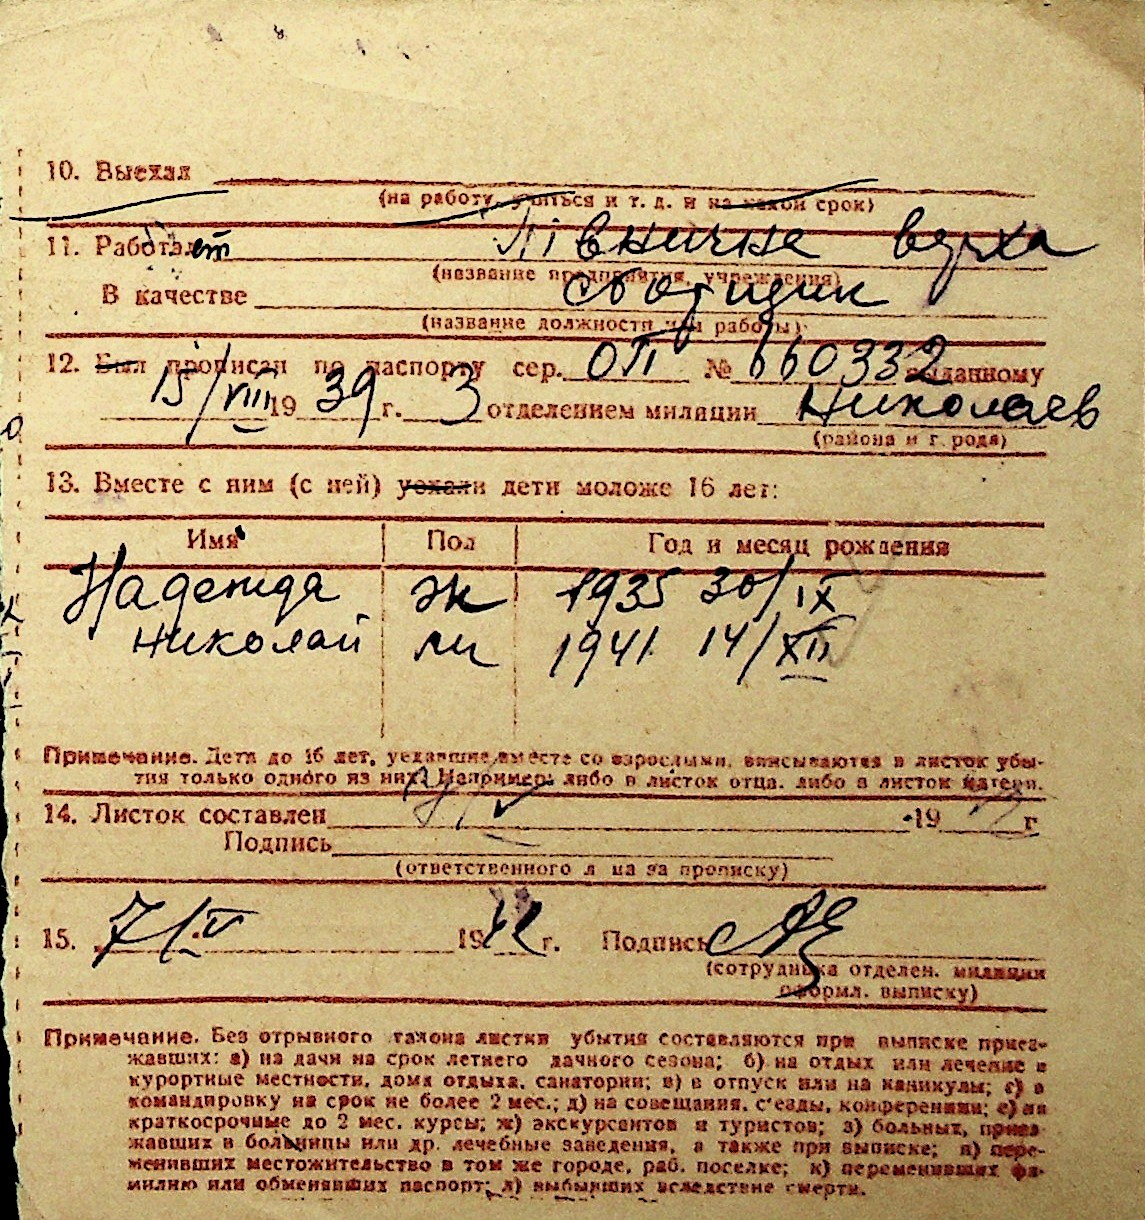 10. Выехал
(на работу, учиться и т. д. и на какой срок)
11. Работает Північна верха
(название предприятия, учреждения)
В качестве
(название должности или работы)
12. Был прописан по паспорту сер. ОП № 660332 выданному
15/VIII 1939 г. 3 отделением милиции Николаев
(района и города)
13. Вместе с ним (с ней) уехали дети моложе 16 лет:
Имя Пол Год и месяц рождения
Надежда ж 1935 30/IX
Николай м 1941 14/XII
Примечание. Дети до 16 лет, уехавшие вместе со взрослыми, вписываются в листок убы-
тия только одного из них. Например: либо в листок отца, либо в листок матери.
14. Листок составлен 19 г
Подпись
(ответственного лица за прописку)
15. 7/V 1942 г. Подпись
(сотрудника отделен. милиции
оформл. выписку)
Примечание. Без отрывного талона листки убытия составляются при выписке приез-
жавших: а) на дачи на срок летнего дачного сезона; б) на отдых или лечение в
курортные местности, дома отдыха, санатории; в) в отпуск или на каникулы; г) в
командировку на срок не более 2 мес.; д) на совещания, с'езды, конференции; е) на
краткосрочные до 2 мес. курсы; ж) экскурсантов и туристов; з) больных, приез
жавших в больницы или др. лечебные заведения, а также при выписке; и) пере-
менивших местожительство в том же городе, раб. поселке; к) переменивших фа-
милию или обменявших паспорт; л) выбывших вследствие смерти.